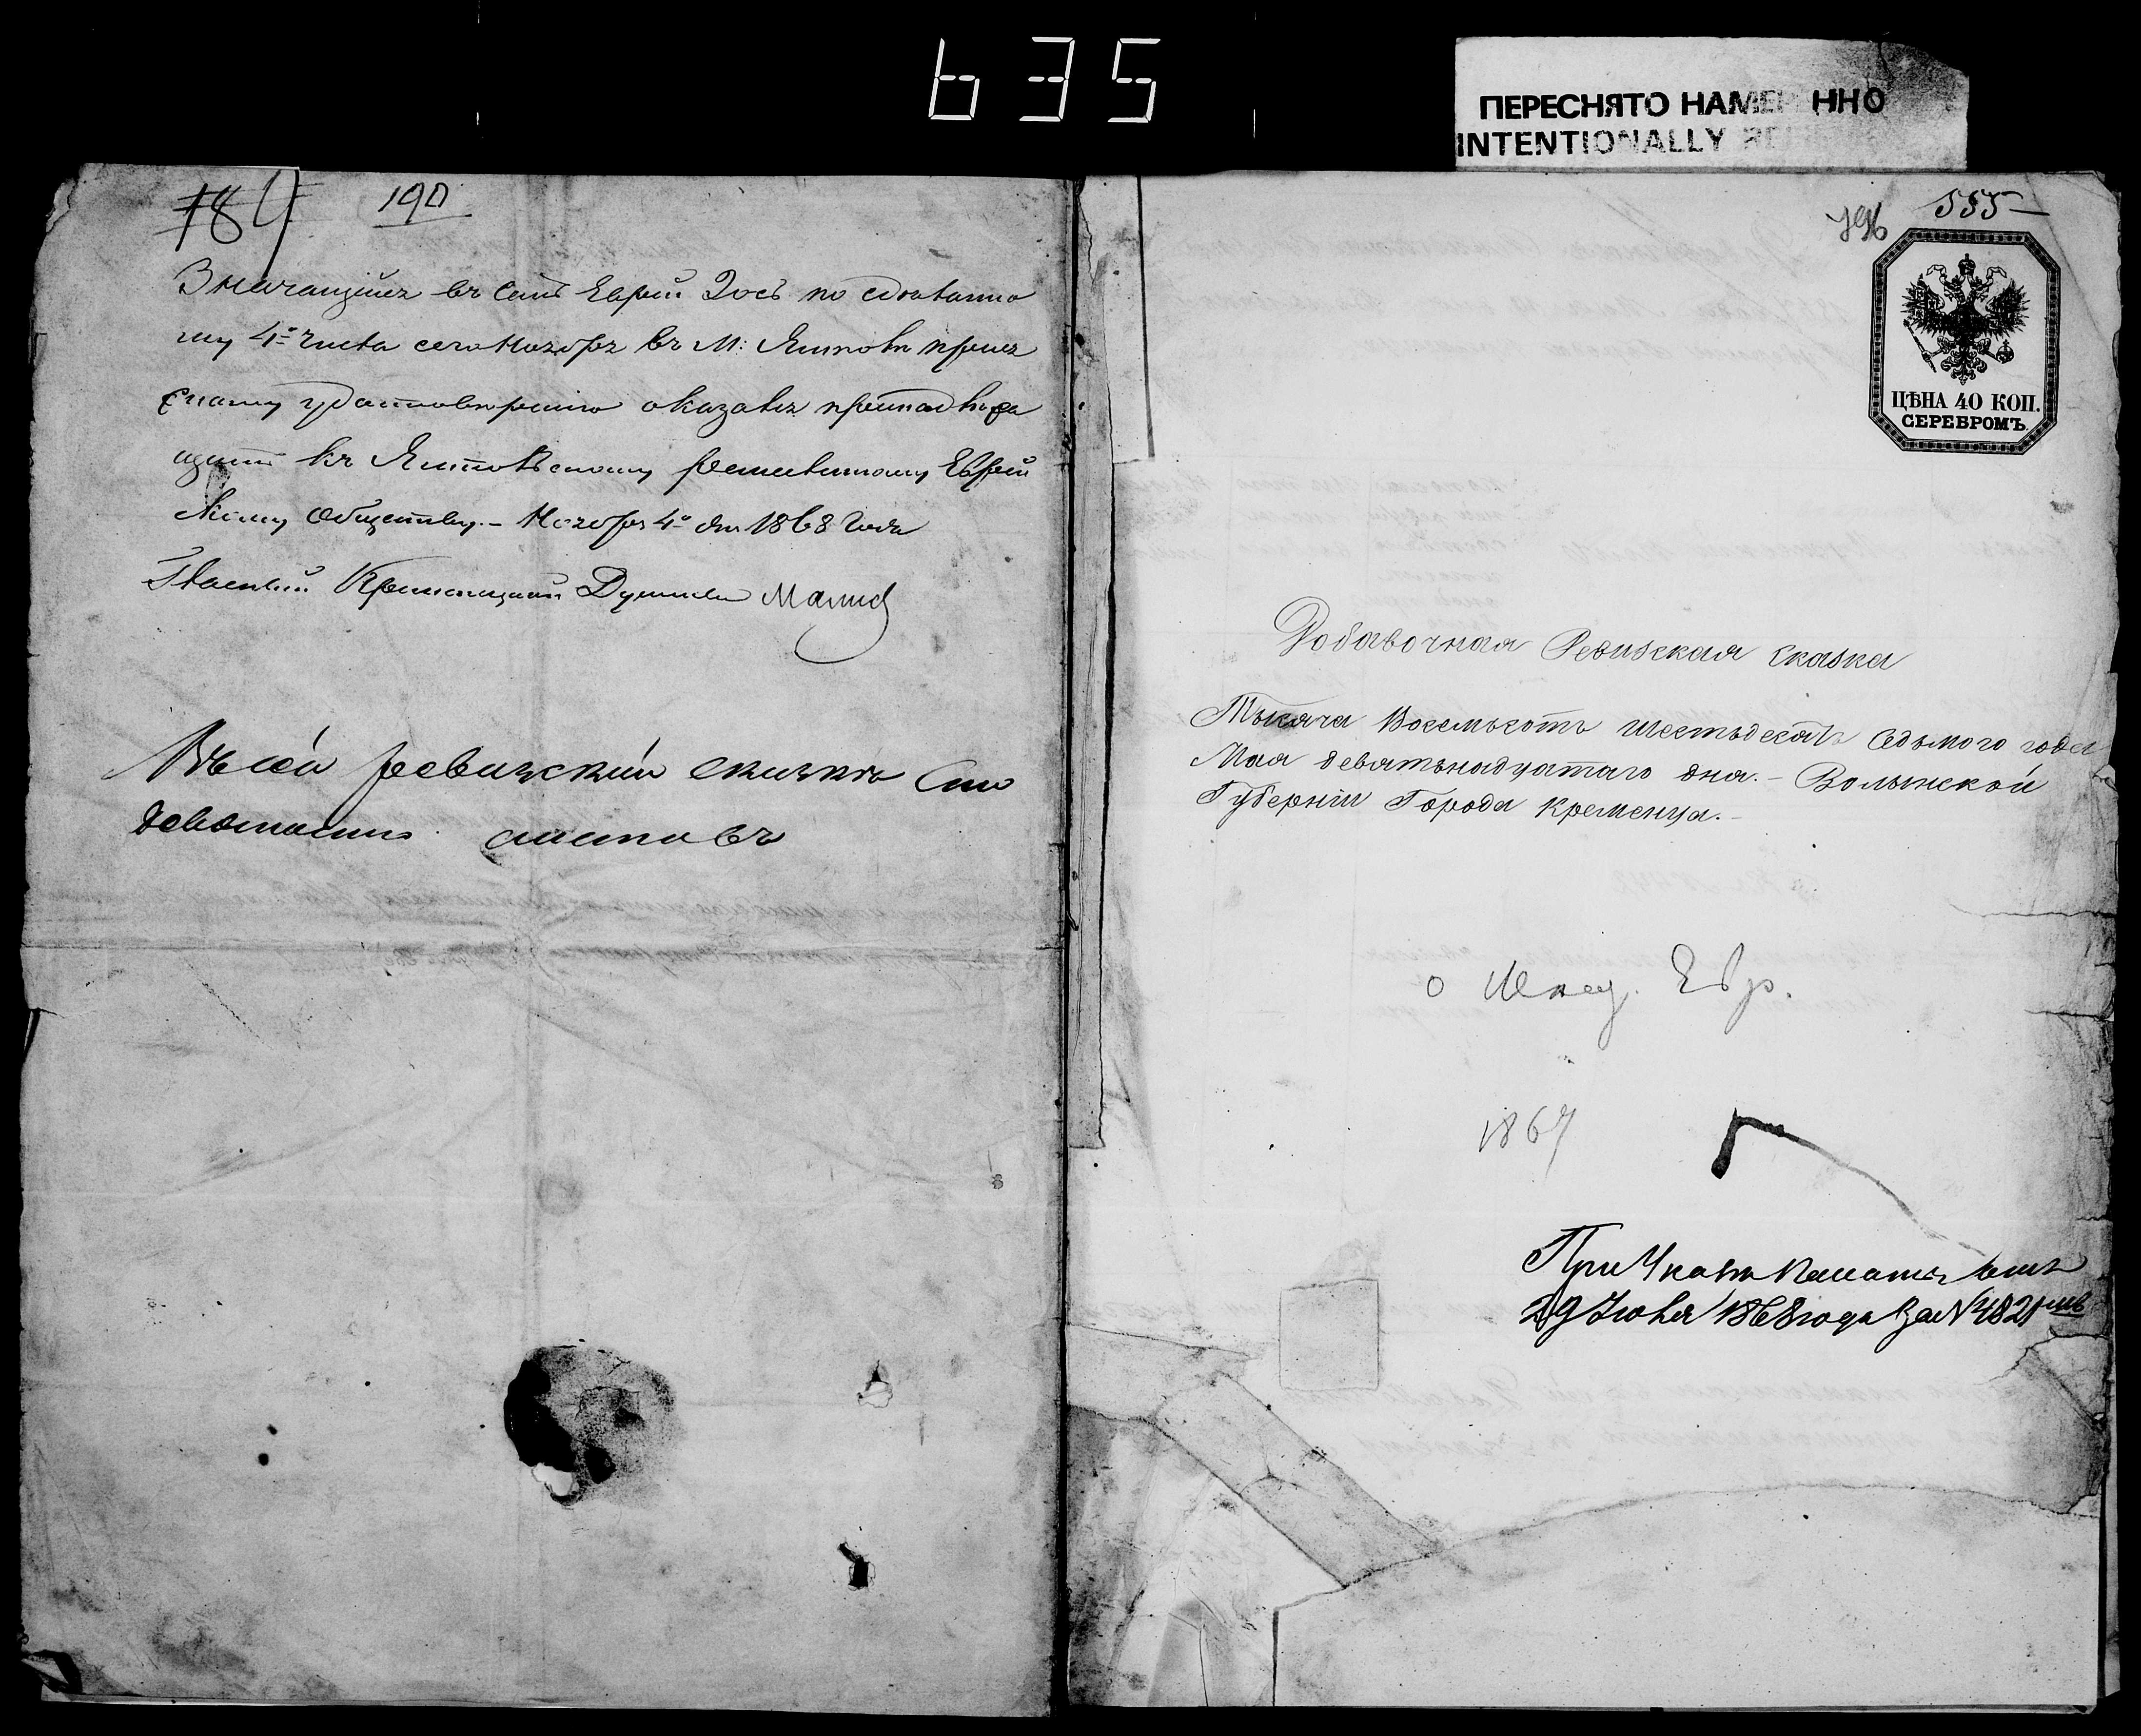 635
ПЕРЕСНЯТО НАМЕ ННО
INTENTIONALLY RE
784 190
Значащійся въ семъ Еврей по сдѣланно
му 4го числа сего Ноября въ М:
удостовѣренію оказался принадлежа
щимъ къ Еврей
скому Обществу. – Ноября 4го дня 1868 года
Гласный Кременецкой Думы
Въ сей ревизской сказкѣ сто
девяносто листовъ
796 555
ЦѢНА 40 КОП.
СЕРЕБРОМЪ.
Добавочная Ревизская Сказка
Тысяча Восемьсотъ шестьдесятъ седьмого года
Мая девятьнадцатаго дня. – Волынской
Губерніи Города Кременца. –
о Мѣщ. Евр.
1867
При Указѣ Палаты отъ
29 Іюня 1868 года за № 4821